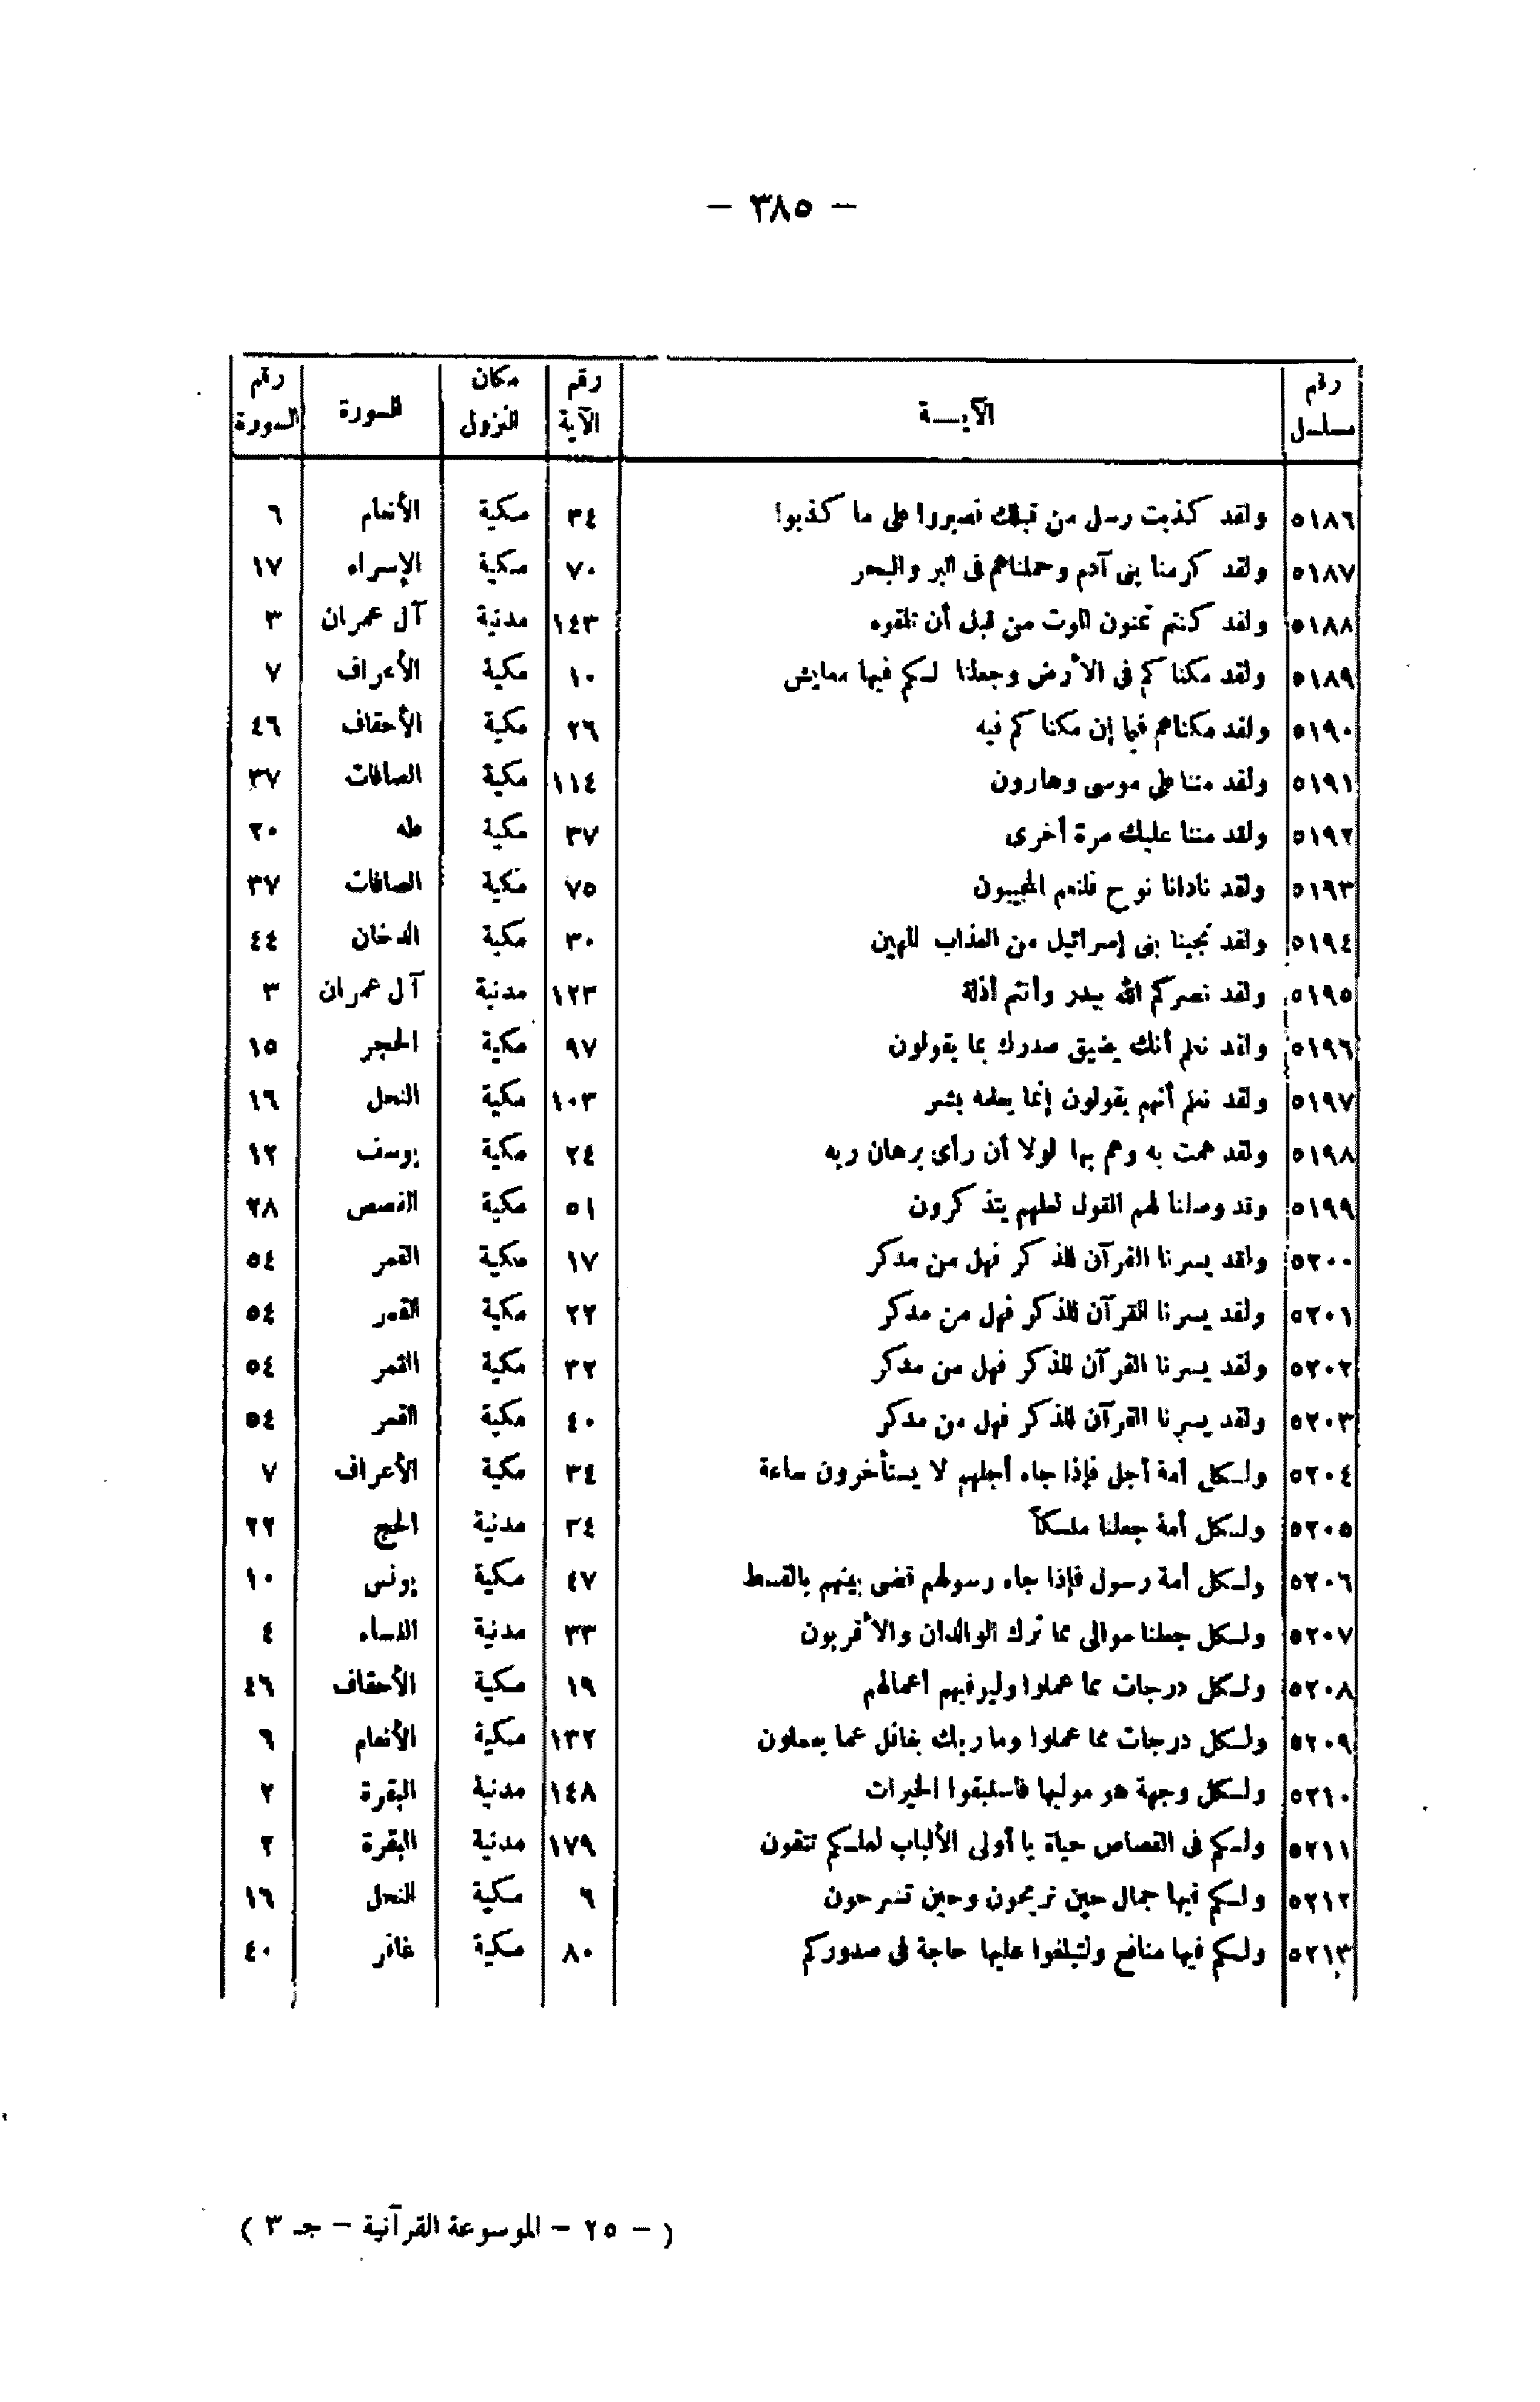 — ٣٨٥ —
رقم مسلسل الآيـــة رقم الآية مكان النزول السورة رقم السورة
٥١٨٦ ولقد كذبت رسل من قبلك فصبروا على ما كذبوا ٣٤ مكية الأنعام ٦
٥١٨٧ ولقد كرمنا بنى آدم وحملناهم فى البر والبحر ٧٠ مكية الإسراء ١٧
٥١٨٨ ولقد كنتم تمنون الموت من قبل أن تلقوه ١٤٣ مدنية آل عمران ٣
٥١٨٩ ولقد مكناكم فى الأرض وجعلنا لكم فيها معايش ١٠ مكية الأعراف ٧
٥١٩٠ ولقد مكناهم فيما إن مكناكم فيه ٢٦ مكية الأحقاف ٤٦
٥١٩١ ولقد مننا على موسى وهارون ١١٤ مكية الصافات ٣٧
٥١٩٢ ولقد مننا عليك مرة أخرى ٣٧ مكية طه ٢٠
٥١٩٣ ولقد نادانا نوح فلنعم المجيبون ٧٥ مكية الصافات ٣٧
٥١٩٤ ولقد نجينا بنى إسرائيل من العذاب المهين ٣٠ مكية الدخان ٤٤
٥١٩٥ ولقد نصركم الله ببدر وأنتم أذلة ١٢٣ مدنية آل عمران ٣
٥١٩٦ ولقد نعلم أنك يضيق صدرك بما يقولون ٩٧ مكية الحجر ١٥
٥١٩٧ ولقد نعلم أنهم يقولون إنما يعلمه بشر ١٠٣ مكية النحل ١٦
٥١٩٨ ولقد همت به وهم بها لولا أن رأى برهان ربه ٢٤ مكية يوسف ١٢
٥١٩٩ وقد وصلنا لهم القول لعلهم يتذكرون ٥١ مكية القصص ٢٨
٥٢٠٠ ولقد يسرنا القرآن للذكر فهل من مدكر ١٧ مكية القمر ٥٤
٥٢٠١ ولقد يسرنا القرآن للذكر فهل من مدكر ٢٢ مكية القمر ٥٤
٥٢٠٢ ولقد يسرنا القرآن للذكر فهل من مدكر ٣٢ مكية القمر ٥٤
٥٢٠٣ ولقد يسرنا القرآن للذكر فهل من مدكر ٤٠ مكية القمر ٥٤
٥٢٠٤ ولكل أمة أجل فإذا جاء أجلهم لا يستأخرون ساعة ٣٤ مكية الأعراف ٧
٥٢٠٥ ولكل أمة جعلنا منسكاً ٣٤ مدنية الحج ٢٢
٥٢٠٦ ولكل أمة رسول فإذا جاء رسولهم قضى بينهم بالقسط ٤٧ مكية يونس ١٠
٥٢٠٧ ولكل جعلنا موالى مما ترك الوالدان والأقربون ٣٣ مدنية النساء ٤
٥٢٠٨ ولكل درجات مما عملوا وليوفيهم أعمالهم ١٩ مكية الأحقاف ٤٦
٥٢٠٩ ولكل درجات مما عملوا وما ربك بغافل عما يعملون ١٣٢ مكية الأنعام ٦
٥٢١٠ ولكل وجهة هو موليها فاستبقوا الخيرات ١٤٨ مدنية البقرة ٢
٥٢١١ ولكم فى القصاص حياة يا أولى الألباب لعلكم تتقون ١٧٩ مدنية البقرة ٢
٥٢١٢ ولكم فيها جمال حين تريحون وحين تسرحون ٦ مكية النحل ١٦
٥٢١٣ ولكم فيها منافع ولتبلغوا عليها حاجة فى صدوركم ٨٠ مكية غافر ٤٠
( — ٢٥ — الموسوعة القرآنية — جـ ٣ )